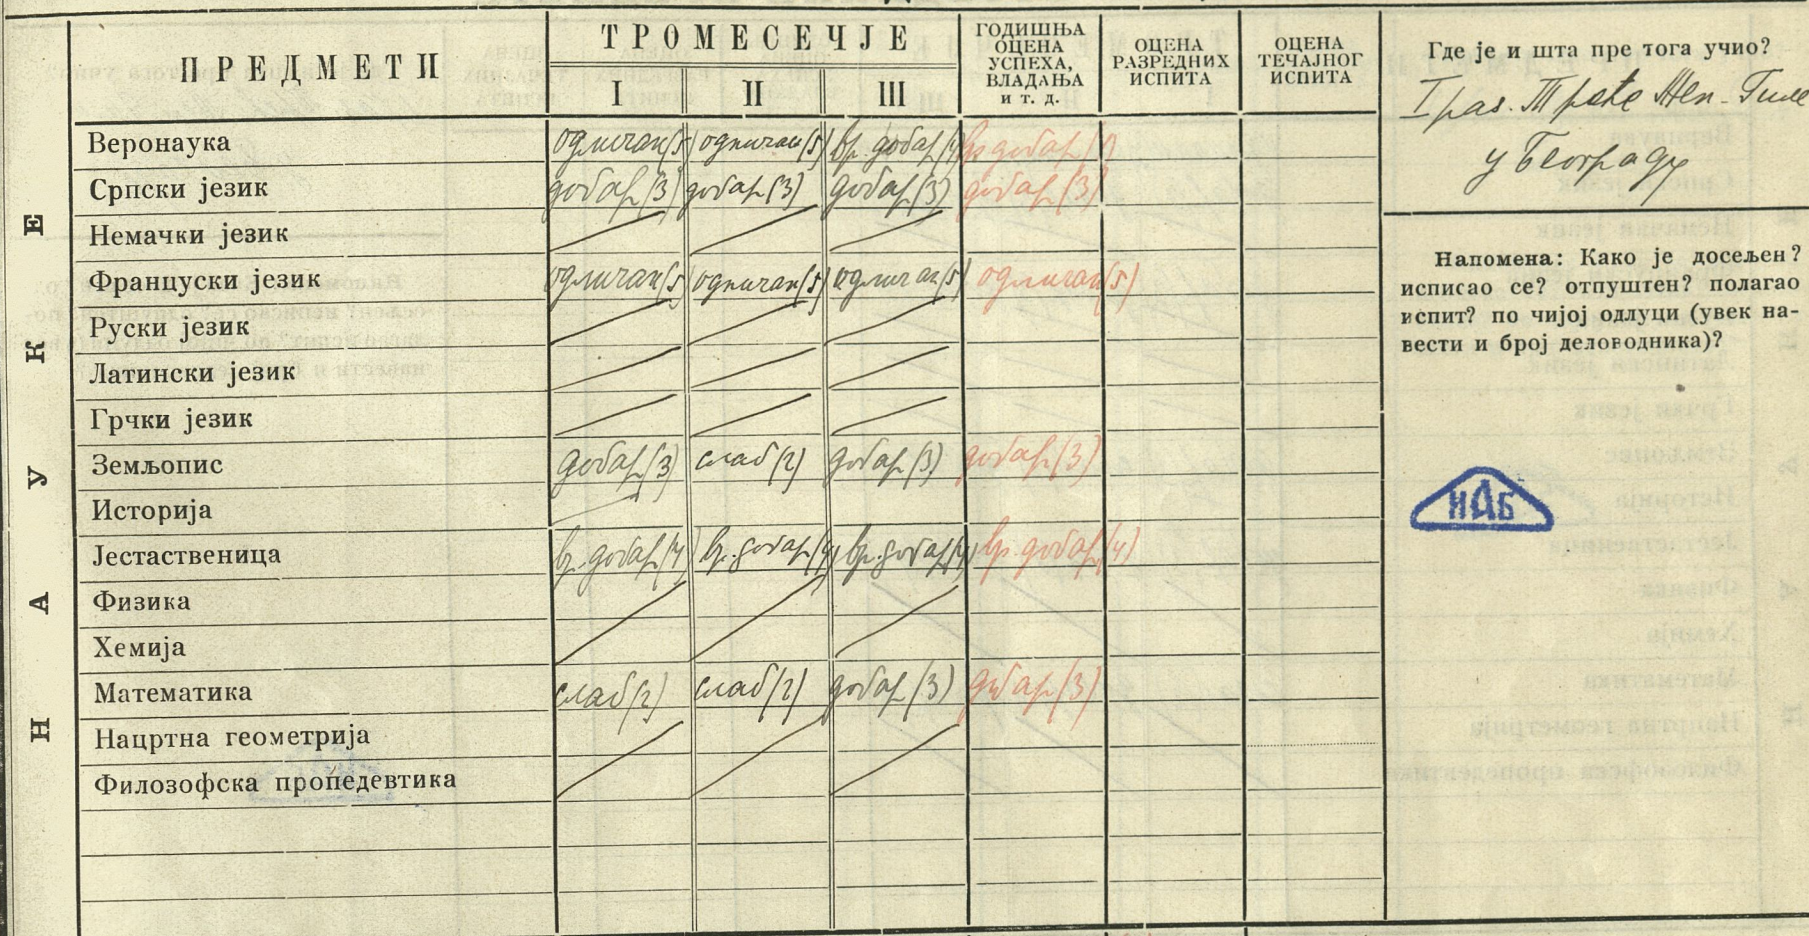 ПРЕДМЕТИ
ТРОМЕСЕЧЈЕ
I II III
ГОДИШЊА ОЦЕНА УСПЕХА, ВЛАДАЊА и т. д.
ОЦЕНА РАЗРЕДНИХ ИСПИТА
ОЦЕНА ТЕЧАЈНОГ ИСПИТА
НАУКЕ
Веронаука одличан (5) одличан (5) вр. добар (4) вр. добар (4)
Српски језик добар (3) добар (3) добар (3) добар (3)
Немачки језик
Француски језик одличан (5) одличан (5) одличан (5) одличан (5)
Руски језик
Латински језик
Грчки језик
Земљопис добар (3) слаб (2) добар (3) добар (3)
Историја
Јестаственица вр. добар (4) вр. добар (4) вр. добар (4) вр. добар (4)
Физика
Хемија
Математика слаб (2) слаб (2) добар (3) добар (3)
Нацртна геометрија
Филозофска пропедевтика
Где је и шта пре тога учио?
I раз. Треће Жен. Гимн
у Београду
Напомена: Како је досељен?
исписао се? отпуштен? полагао
испит? по чијој одлуци (увек на-
вести и број деловодника)?
ИАБ